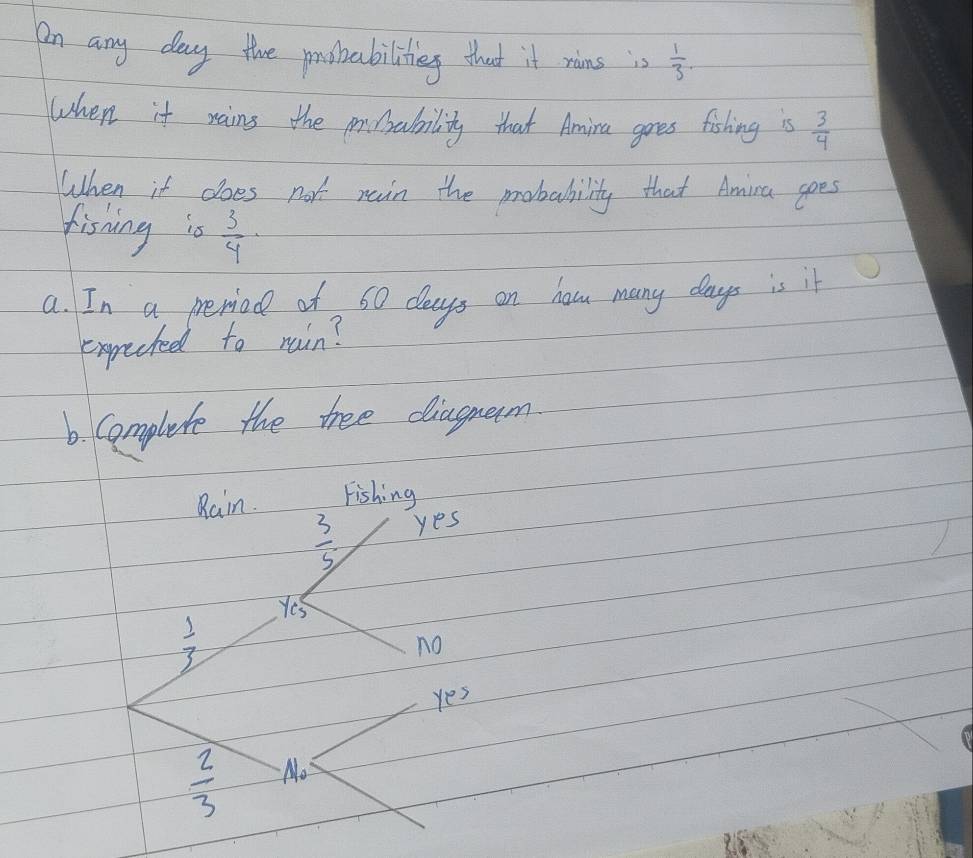 On any day the probabilities that it rains is 1/3.
When it rains the probability that Amira goes fishing is 3/4
When it does not rain the probability that Amira goes
fishing is 3/4.
a. In a period of 60 days on how many days is it
expected to rain?
b. Complete the tree diagram.
Rain. Fishing
3/5 yes
Yes
1/3
no
yes
2/3 No